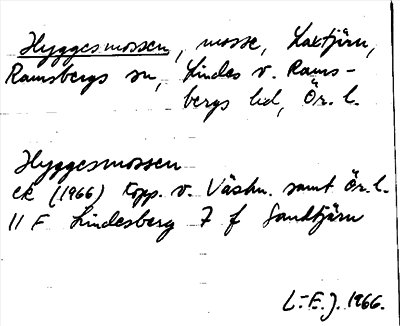 Hyggesmossen, mosse, Laxtjärn,
Ramsbergs sn, Lindes v. Rams-
bergs hd, Ör. l.
Hyggesmossen
ek (1966) Kopp. v. Västm. samt Ör. l.
11 F Lindesberg 7 f Sandtjärn
L-E. J. 1966.